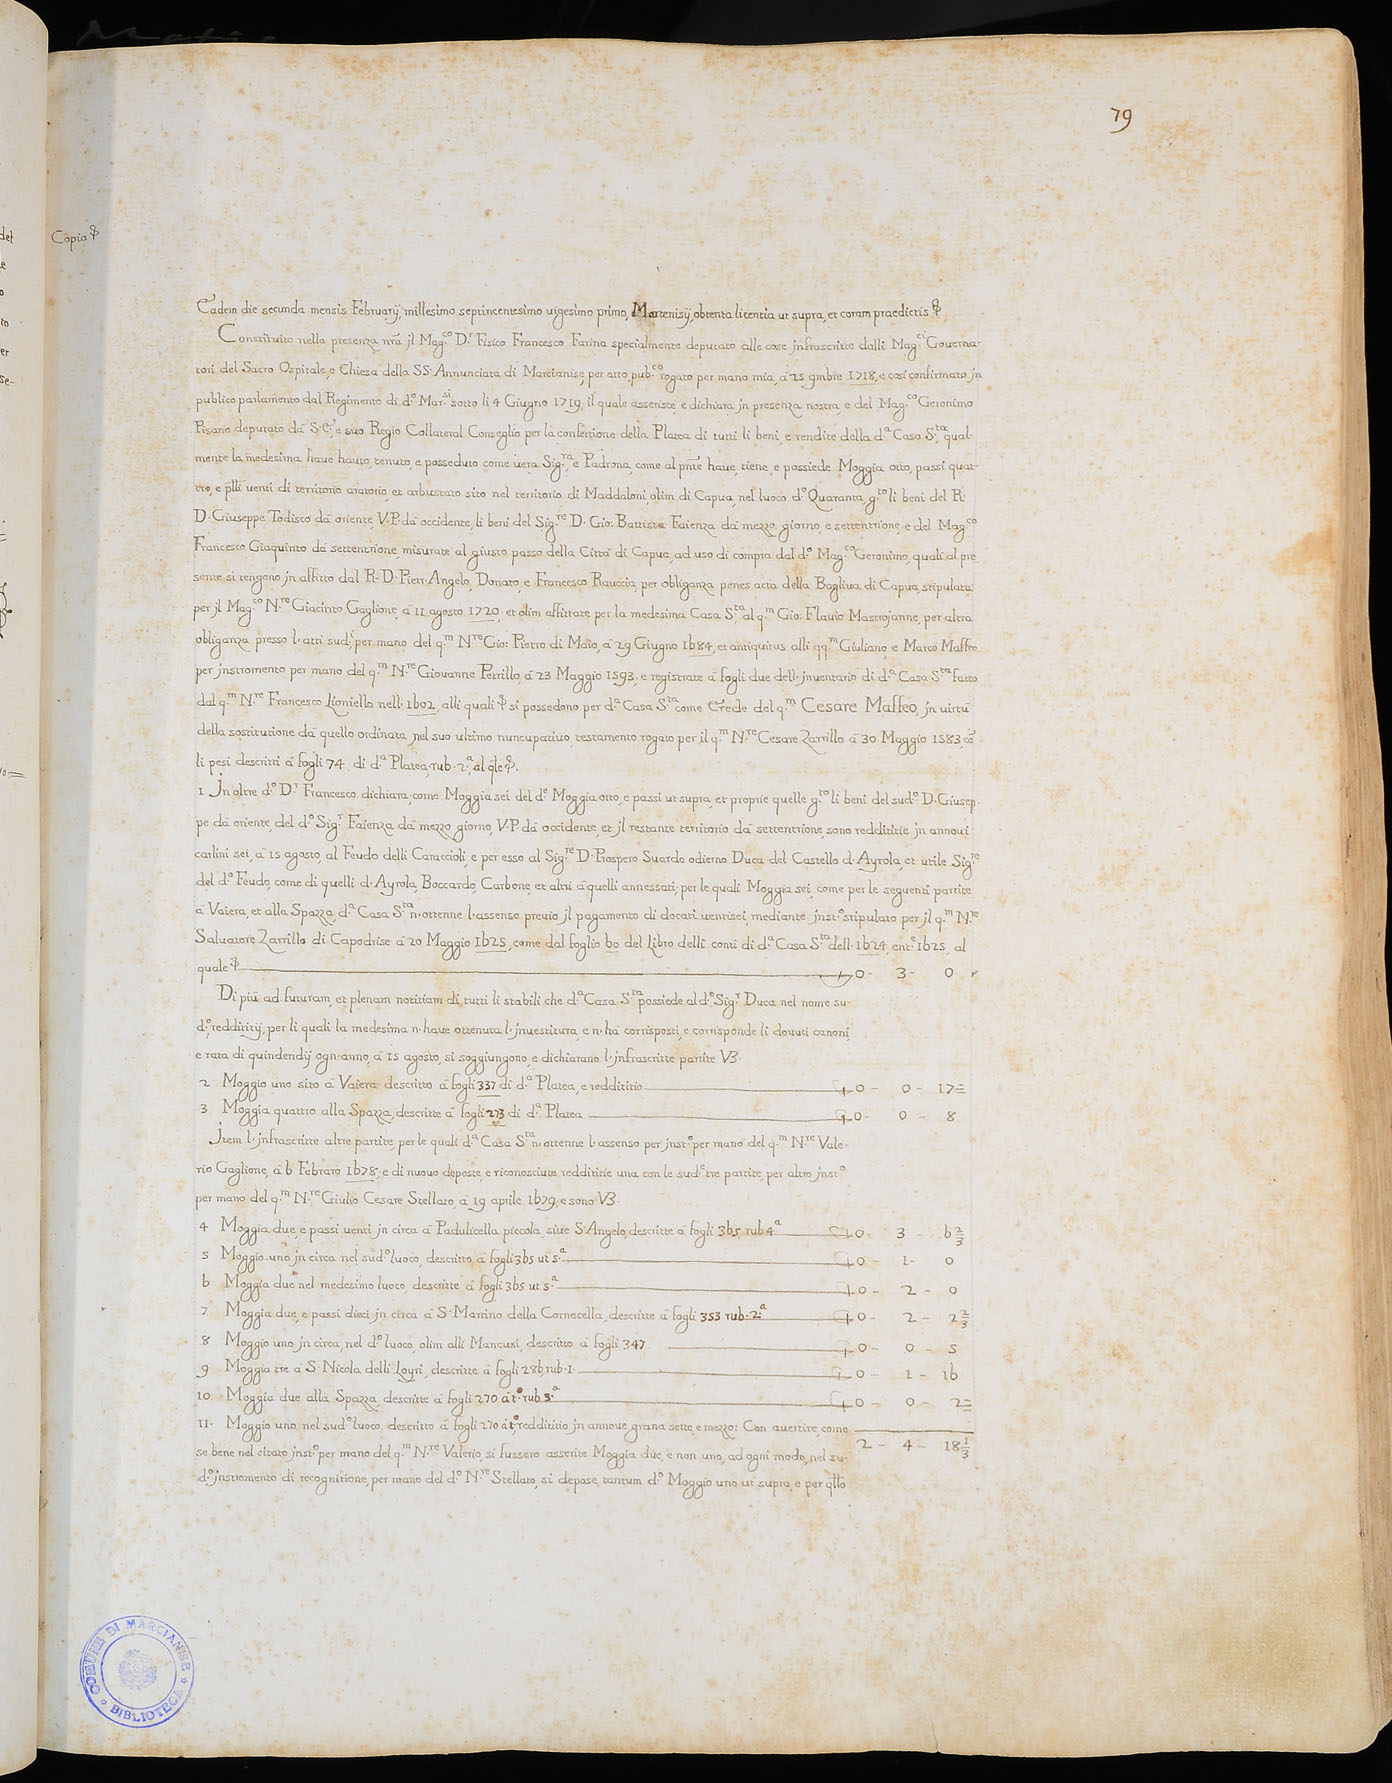 79
Copia &
Eadem die secunda mensis February, millesimo septincentesimo uigesimo primo, Martenisij, obtenta licentia ut supra, et coram praedictis &
Constituito nella presenza nrã jl Mag.co D.r Fisico Francesco Farina specialmente deputato alle cose jnfrascritte dalli Mag.ci Governa-
tori del Sacro Ospitale, e Chiesa della SS. Annunciata di Marcianise, per atto pub.co rogato per mano mia, à 25 9mbre 1718, e così confirmato jn
publico parlamento dal Regimento di d.o Mar.si sotto li 4 Giugno 1719; il quale asserisce, e dichiara jn presenza nostra, e del Mag.co Geronimo
Pisano deputato da S.E., e suo Regio Collateral Conseglio per la confettione della Platea di tutti li beni, e rendite della d.a Casa S.ta, qual-
mente la medesima haue hauto, tenuto, e posseduto come uera Sig.ra, e Padrona, come al pnte haue, tiene, e possiede Moggia otto, passi quat-
tro, e plli uenti di territorio aratorio, et arbustato sito nel territorio di Maddaloni, olim di Capua, nel luoco d.o Quaranta, g.to li beni del R.
D. Giuseppe Todisco dà oriente, V.P. dà occidente, li beni del Sig.re D. Gio: Battista Faienza dà mezzo giorno, e settentrione, e del Mag.co
Francesco Giaquinto dà settentrione, misurate al giusto passo della Città di Capua, ad uso di compra dal d.o Mag.co Geronimo, quali al pre
sente si tengono jn affitto dal R. D. Pietr'Angelo, Donato, e Francesco Rauccia, per obliganza penes acta della Bagliua di Capua, stipulata
per jl Mag.co N.re Giacinto Gaglione, à 11 agosto 1720; et olim affittate per la medesima Casa S.ta al q.m Gio: Flauio Mastrojanne, per altra
obliganza presso l'atti sud.i, per mano del q.m N.re Gio: Pietro di Maio, à 29 Giugno 1684, et antiquitus alli qq.m Giuliano, e Marco Maffeo
per jnstromento per mano del q.m N.re Giouanne Petrillo, à 23 Maggio 1593, e registrate à fogli due dell'jnuentario di d.a Casa S.ta fatto
dal q.m N.re Francesco Lioniello nell'1602, alli quali & si possedono per d.a Casa S.ta come Erede del q.m Cesare Maffeo, jn uirtù
della sostitutione dà quello ordinata nel suo ultimo nuncupatiuo testamento rogato per il q.m N.re Cesare Zarrillo à 30 Maggio 1583, cõ
li pesi descritti à fogli 74 di d.a Platea, rub. 2.a, al qle &.
1 Jn oltre d.o D.r Francesco dichiara, come Moggia sei del d.e Moggia otto, e passi ut supra, et proprie quelle g.to li beni del sud.o D. Giusep-
pe dà oriente, del d.o Sig.r Faienza dà mezzo giorno, V.P. dà occidente, et jl restante territorio dà settentrione, sono redditìtie jn annoui
carlini sei, à 15 agosto, al Feudo delli Caraccioli, e per esso al Sig.re D. Prospero Suardo odierno Duca del Castello d'Ayrola, et utile Sig.re
del d.o Feudo, come di quelli d'Ayrola, Boccardo, Carbone, et altri à quelli annessati; per le quali Moggia sei, come per le seguenti partite
à Vaiera, et alla Spazza, d.a Casa S.ta n'ottenne l'assenso preuio jl pagamento di docati uentisei, mediante jnst.o stipulato per jl q.m N.re
Salvatore Zarrillo di Capodrise à 20 Maggio 1625, come dal foglio 60 del Libro delli conti di d.a Casa S.ta dell'1624, ent.e 1625, al
quale & 0 - 3 - 0
Di più ad futuram, et plenam notitiam di tutti li stabili che d.a Casa S.ta possiede al d.o Sig.r Duca nel nome su-
d.o, redditìtij, per li quali la medesima n'haue ottenuta l'jnuestitura, e n'hà corrisposti, e corrisponde li douuti canoni
e rata di quindendij ogn'anno, à 15 agosto, si soggiungono, e dichiarano l'jnfrascritte partite VZ.
2 Moggio uno sito à Vaiera descritto à fogli 337 di d.a Platea, e reddititio 0 - 0 - 17=
3 Moggia quattro alla Spazza, descritte à fogli 273 di d.a Platea 0 - 0 - 8
Jtem l'jnfrascritte altre partite, per le quali d.a Casa S.ta n'ottenne l'assenso per jnst.o per mano del q.m N.re Vale-
rio Gaglione, à 6 Febraro 1678; e di nuouo deposte, e riconosciute redditìtie una con le sud.e tre partite, per altro jnst.o
per mano del q.m N.re Giulio Cesare Stellato, à 19 aprile 1679; e sono VZ.
4 Moggia due, e passi uenti jn circa à Padulicella piccola, siue S. Angelo, descritte à fogli 365 rub 4.a 0 - 3 - 6 2/3
5 Moggio uno jn circa nel sud.o luoco, descritto à fogli 365 ut s.a 0 - 1 - 0
6 Moggia due nel medesimo luoco, descritte à fogli 365 ut s.a 0 - 2 - 0
7 Moggia due, e passi dieci jn circa à S. Martino della Cornecella, descritte à fogli 353 rub. 2.a 0 - 2 - 2 2/3
8 Moggio uno jn circa, nel d.o luoco, olim alli Mancusi, descritto à fogli 347 0 - 0 - 5
9 Moggia tre à S. Nicola delli Loyri, descritte à fogli 286, rub. 1. 0 - 1 - 16
10 Moggia due alla Spazza, descritte à fogli 270 à t.o rub 3.a 0 - 0 - 2=
11. Moggio uno nel sud.o luoco descritto à fogli 270 à t.o, reddititio jn annoue grana sette, e mezzo: Con auertire, come
2 - 4 - 18 1/3
se bene nel citato jnst.o per mano del q.m N.re Valerio, si fussero asserite Moggia due, e non uno, ad ogni modo, nel su-
d.o jnstromento di recognitione, per mano del d.o N.re Stellato, si depose tantum d.o Moggio uno ut supra, e per qllo
COMUNE DI MARCIANISE
BIBLIOTECA